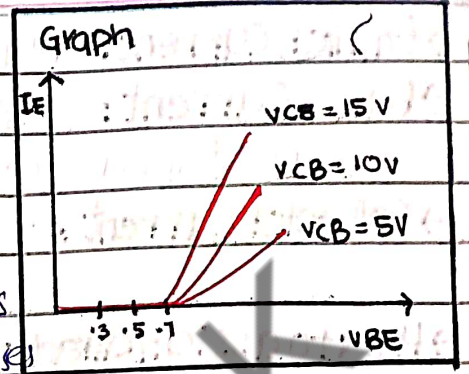 Graph
IE
VCB = 15 V
VCB = 10V
VCB = 5V
.3 .5 .7
VBE